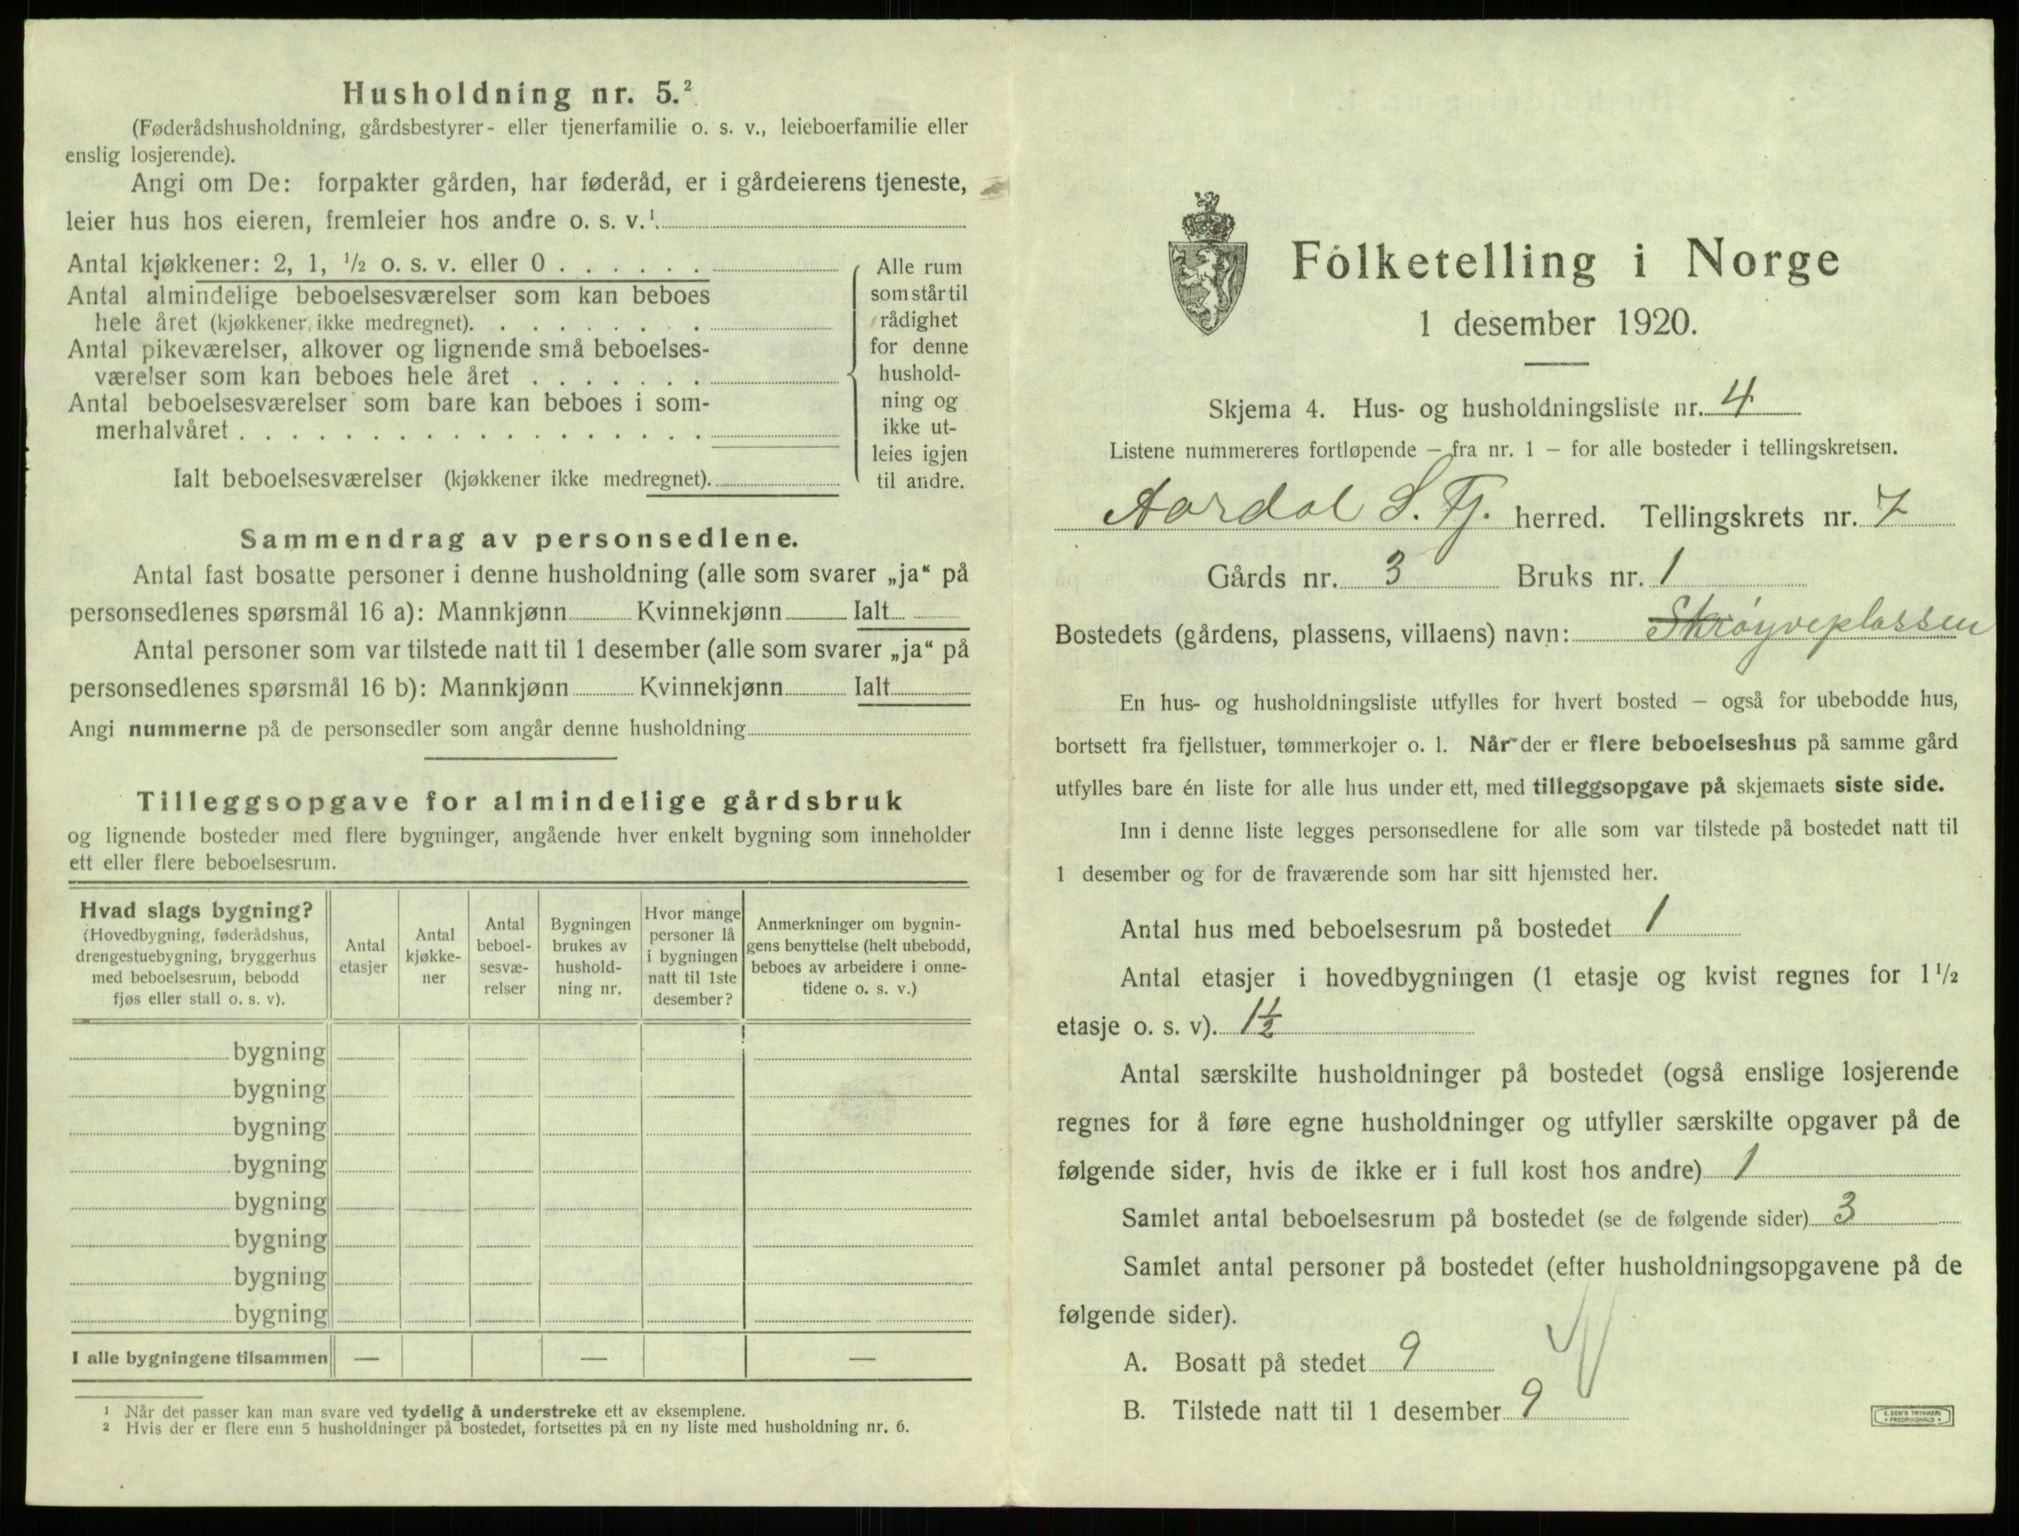 Husholdning nr. 5.²
(Føderådshusholdning, gårdsbestyrer- eller tjenerfamilie o. s. v., leieboerfamilie eller
enslig losjerende).
Angi om De: forpakter gården, har føderåd, er i gårdeierens tjeneste,
leier hus hos eieren, fremleier hos andre o. s. v.¹
Antal kjøkkener: 2, 1, ½ o. s. v. eller 0 . . . . . .
Antal almindelige beboelsesværelser som kan beboes
hele året (kjøkkener ikke medregnet). . . . . . . . .
Antal pikeværelser, alkover og lignende små beboelses-
værelser som kan beboes hele året . . . . . . .
Antal beboelsesværelser som bare kan beboes i som-
merhalvåret . . . . . . . . . . . . . . . . . .
Ialt beboelsesværelser (kjøkkener ikke medregnet).
Alle rum
som står til
rådighet
for denne
hushold-
ning og
ikke ut-
leies igjen
til andre.
Sammendrag av personsedlene.
Antal fast bosatte personer i denne husholdning (alle som svarer „ja“ på
personsedlenes spørsmål 16 a): Mannkjønn Kvinnekjønn Ialt
Antal personer som var tilstede natt til 1 desember (alle som svarer „ja“ på
personsedlenes spørsmål 16 b): Mannkjønn Kvinnekjønn Ialt
Angi nummerne på de personsedler som angår denne husholdning
Tilleggsopgave for almindelige gårdsbruk
og lignende bosteder med flere bygninger, angående hver enkelt bygning som inneholder
ett eller flere beboelsesrum.
Hvad slags bygning?
(Hovedbygning, føderådshus,
drengestuebygning, bryggerhus
med beboelsesrum, bebodd
fjøs eller stall o. s. v).
Antal
etasjer
Antal
kjøkke-
ner
Antal
beboel-
sesvæ-
relser
Bygningen
brukes av
hushold-
ning nr.
Hvor mange
personer lå
i bygningen
natt til 1ste
desember?
Anmerkninger om bygnin-
gens benyttelse (helt ubebodd,
beboes av arbeidere i onne-
tidene o. s. v.)
bygning
bygning
bygning
bygning
bygning
bygning
bygning
bygning
I alle bygningene tilsammen — — —
¹ Når det passer kan man svare ved tydelig å understreke ett av eksemplene.
² Hvis der er flere enn 5 husholdninger på bostedet, fortsettes på en ny liste med husholdning nr. 6.
Folketelling i Norge
1 desember 1920.
Skjema 4. Hus- og husholdningsliste nr. 4
Listene nummereres fortløpende – fra nr. 1 – for alle bosteder i tellingskretsen.
Aardal S. Fj. herred. Tellingskrets nr. 7
Gårds nr. 3 Bruks nr. 1
Bostedets (gårdens, plassens, villaens) navn: Skrøyveplassen
En hus- og husholdningsliste utfylles for hvert bosted – også for ubebodde hus,
bortsett fra fjellstuer, tømmerkojer o. l. Når der er flere beboelseshus på samme gård
utfylles bare én liste for alle hus under ett, med tilleggsopgave på skjemaets siste side.
Inn i denne liste legges personsedlene for alle som var tilstede på bostedet natt til
1 desember og for de fraværende som har sitt hjemsted her.
Antal hus med beboelsesrum på bostedet 1
Antal etasjer i hovedbygningen (1 etasje og kvist regnes for 1½
etasje o. s. v). 1½
Antal særskilte husholdninger på bostedet (også enslige losjerende
regnes for å føre egne husholdninger og utfyller særskilte opgaver på de
følgende sider, hvis de ikke er i full kost hos andre) 1
Samlet antal beboelsesrum på bostedet (se de følgende sider) 3
Samlet antal personer på bostedet (efter husholdningsopgavene på de
følgende sider).
A. Bosatt på stedet 9
B. Tilstede natt til 1 desember 9